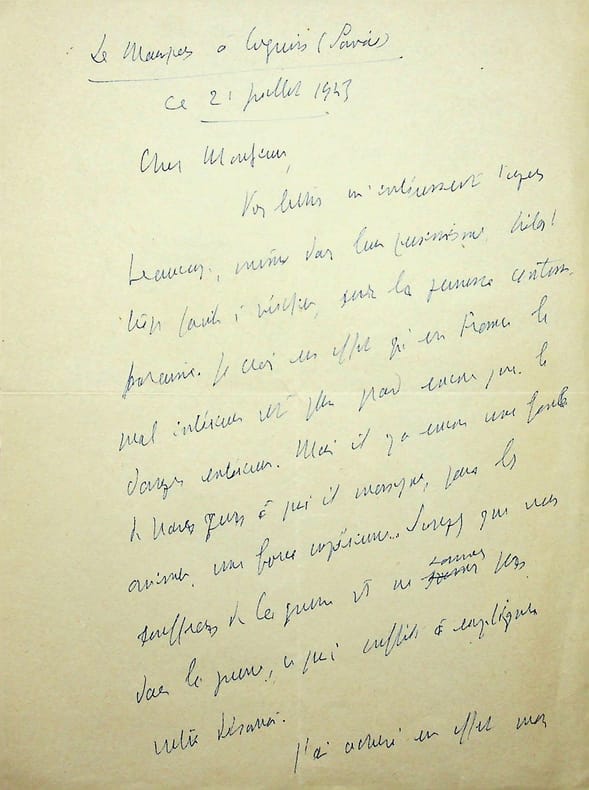 Le Maupas à Cognin (Savoie)
ce 21 juillet 1943
Cher Monsieur,
Vos lettres m'intéressent toujours
beaucoup, même dans leur pessimisme, hélas!
trop facile à vérifier, sur la jeunesse contem-
poraine. Je crois en effet qu'en France le
mal intérieur est plus grand encore que le
danger extérieur. Mais il y a encore une foule
de braves gens à qui il manque, pour les
animer, une force supérieure. Songez que nous
souffrons de la guerre et ne sommes pas
dans la guerre, ce qui suffit à expliquer
notre désarroi.
J'ai achevé en effet mon